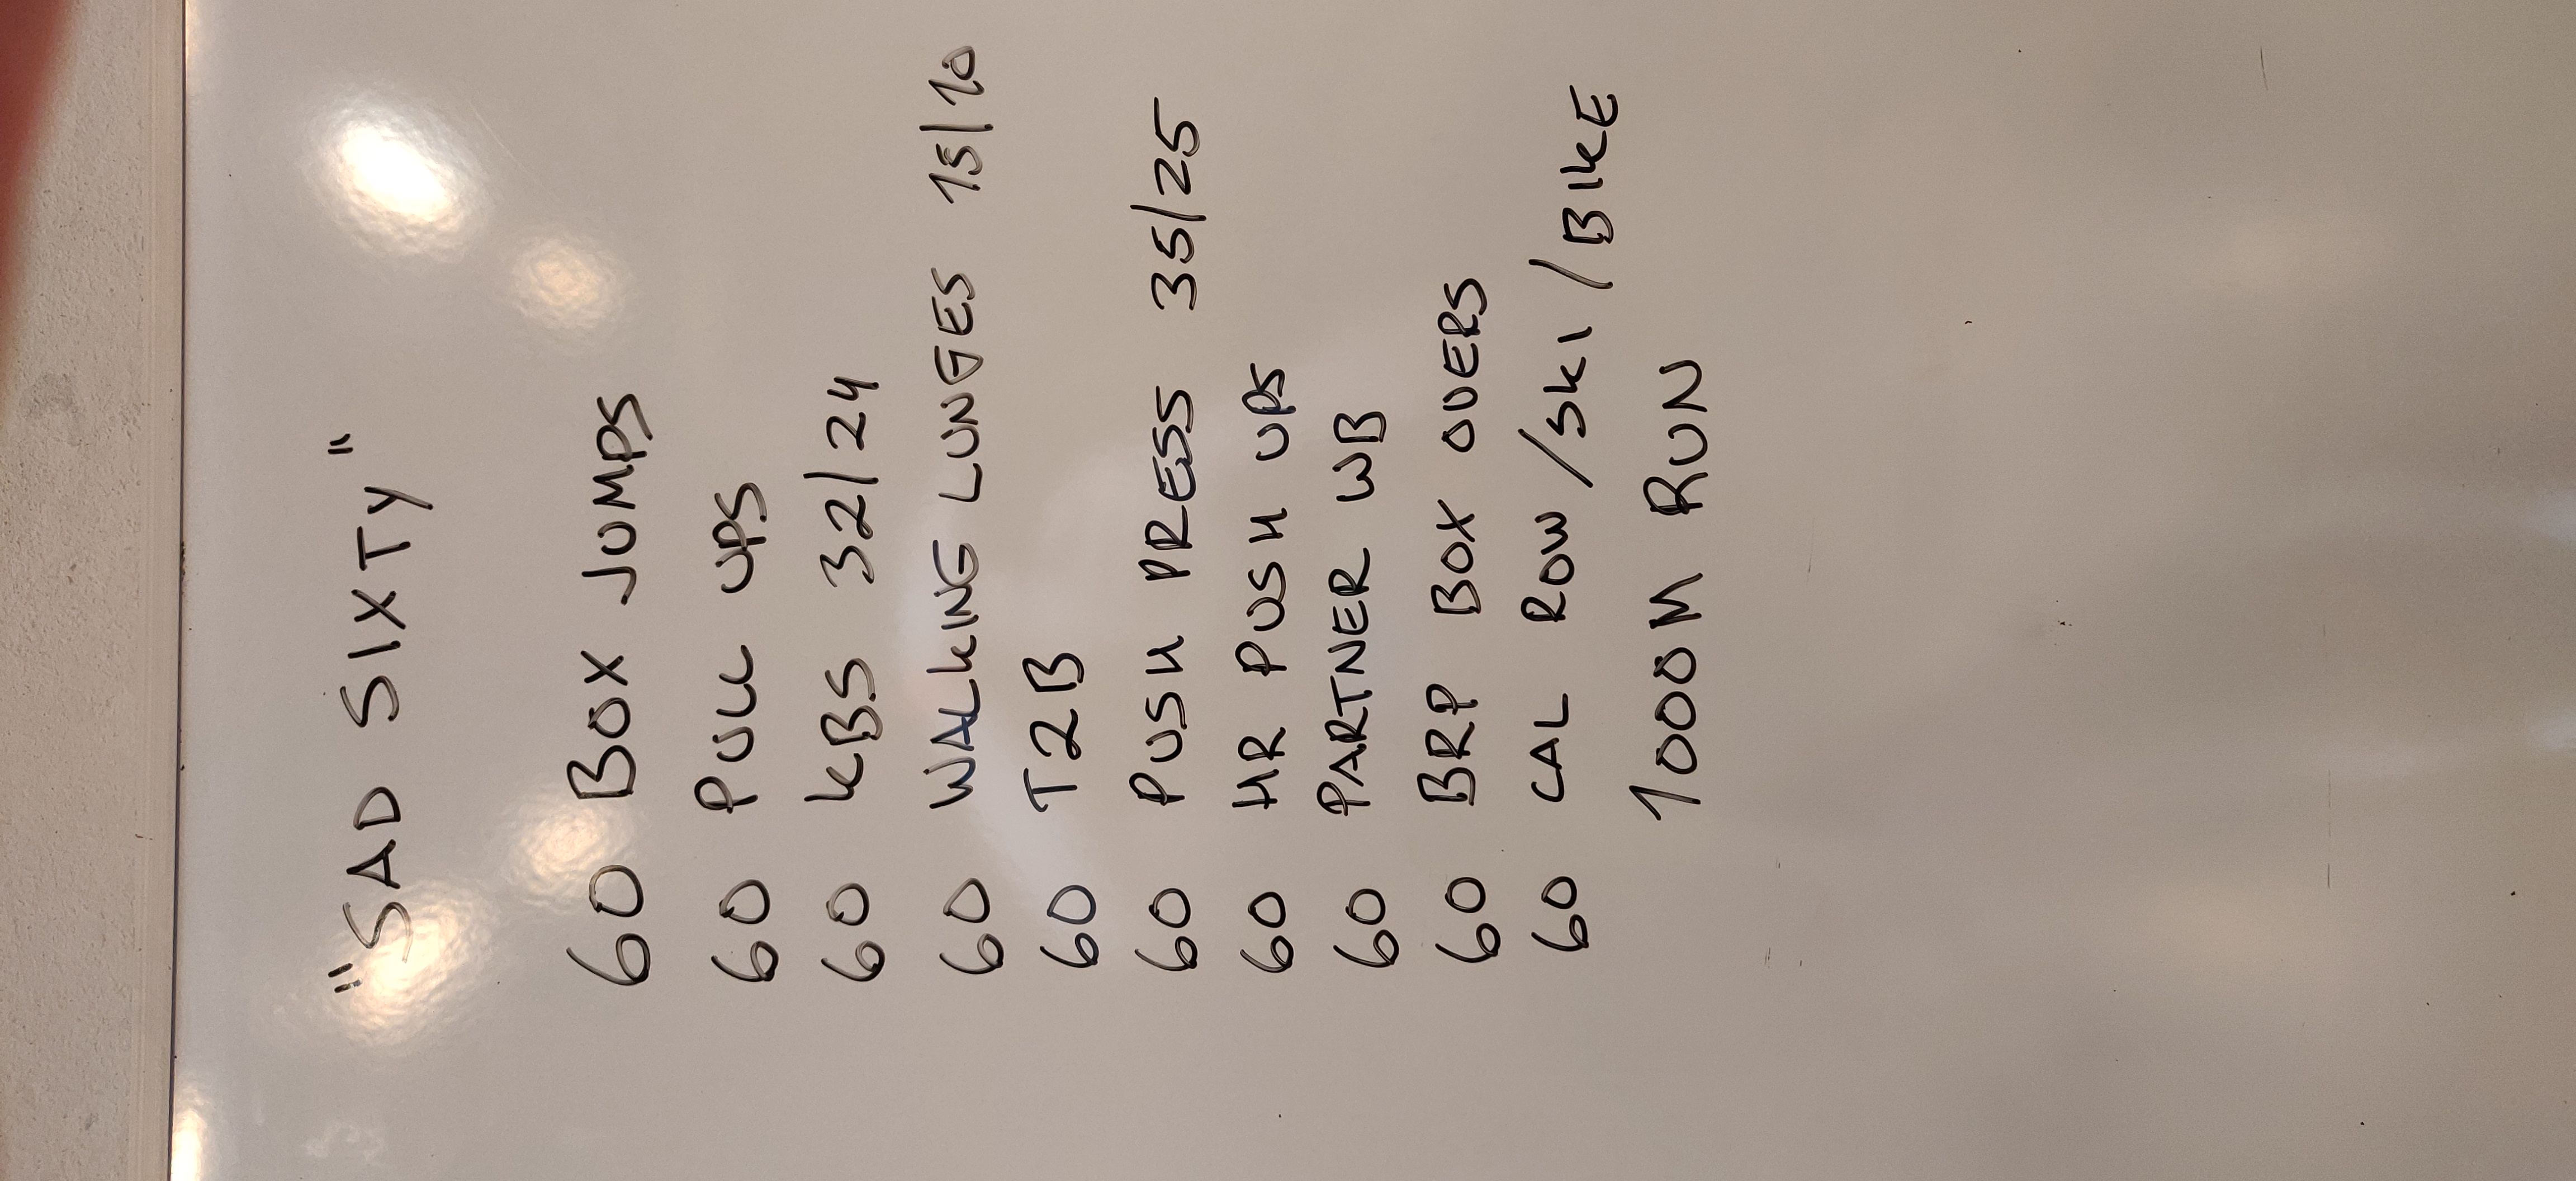 "SAD SIXTY"
60 BOX JUMPS
60 PULL UPS
60 KBS 32/24
60 WALKING LUNGES 15/10
60 T2B
60 PUSH PRESS 35/25
60 HR PUSH UPS
60 PARTNER WB
60 BRP BOX OVERS
60 CAL ROW/SKI/BIKE
1000M RUN